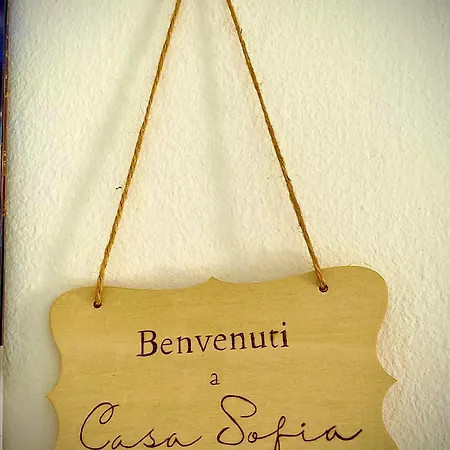 Benvenuti
a
Casa Sofia